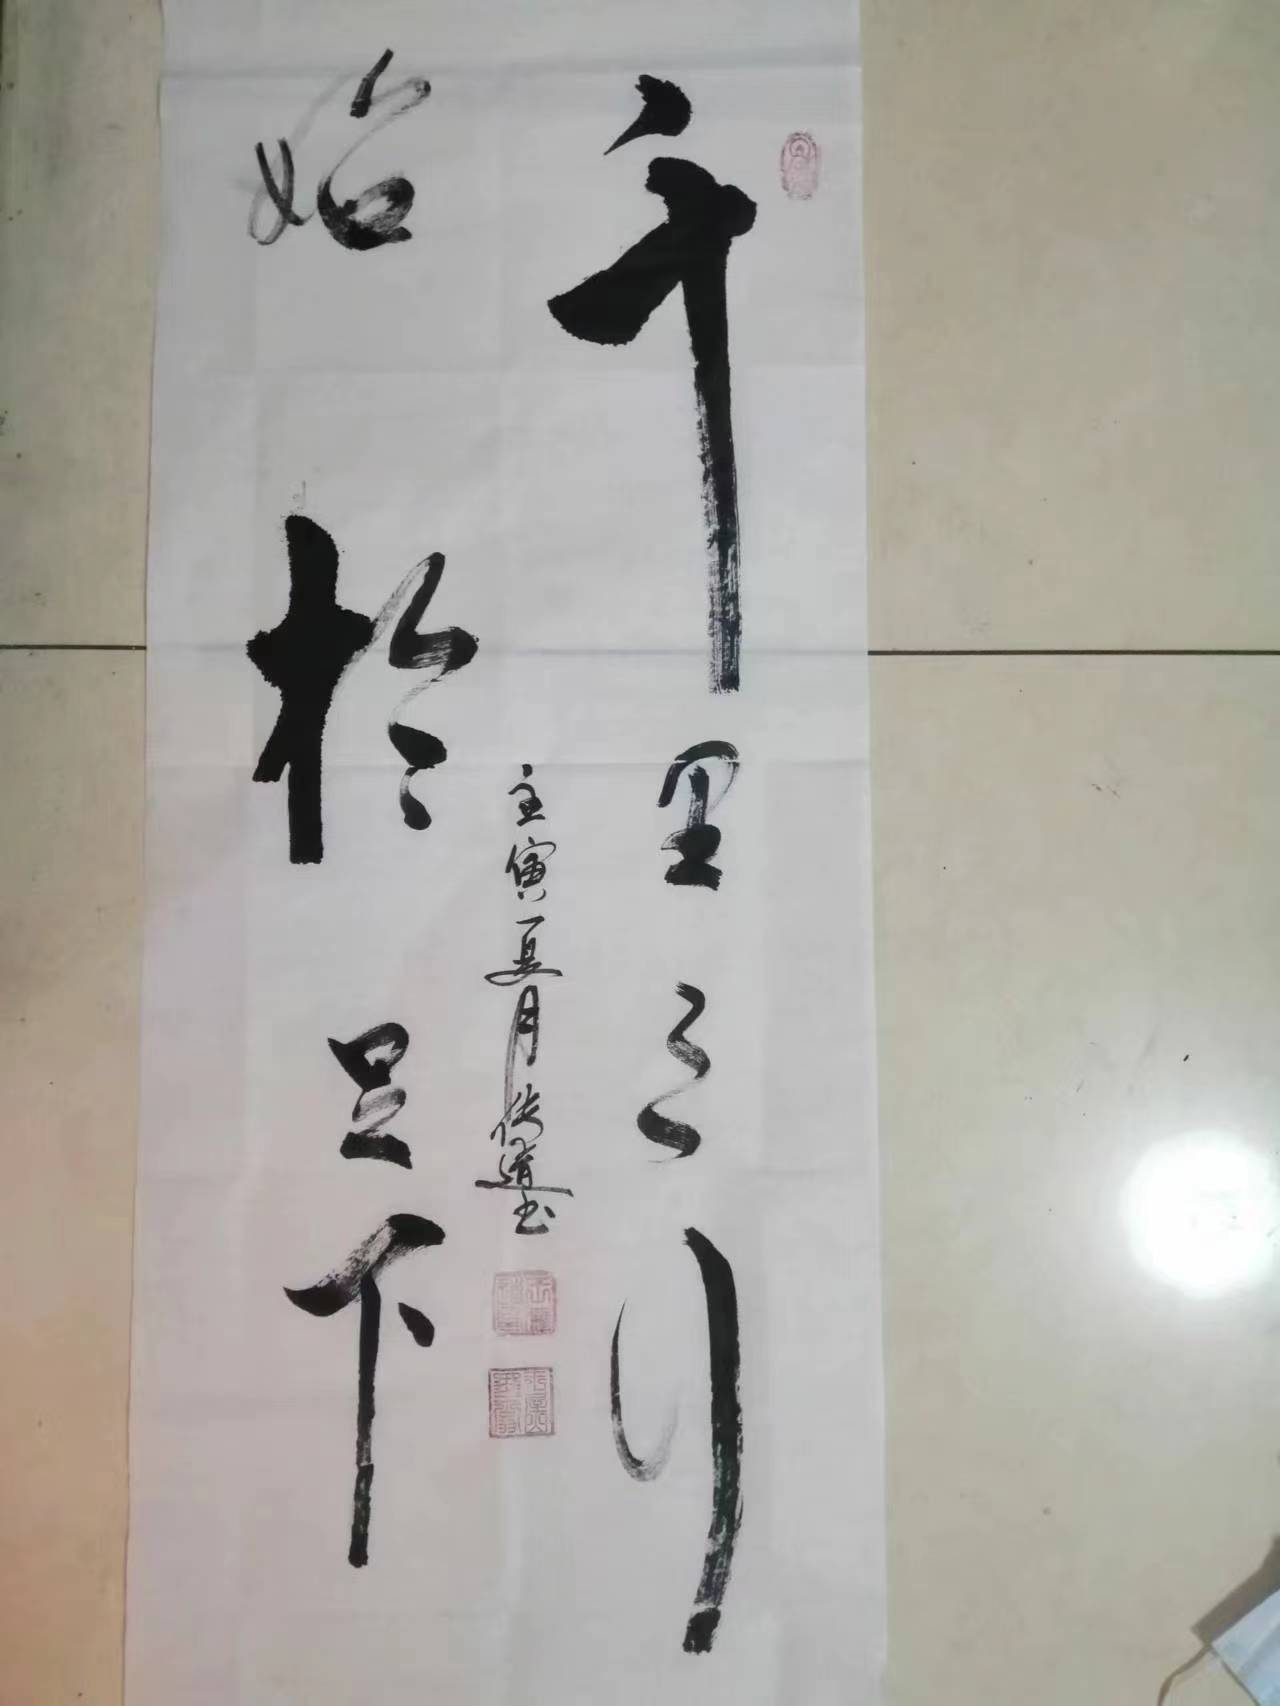 千里之行
始於足下
壬寅夏月传道书